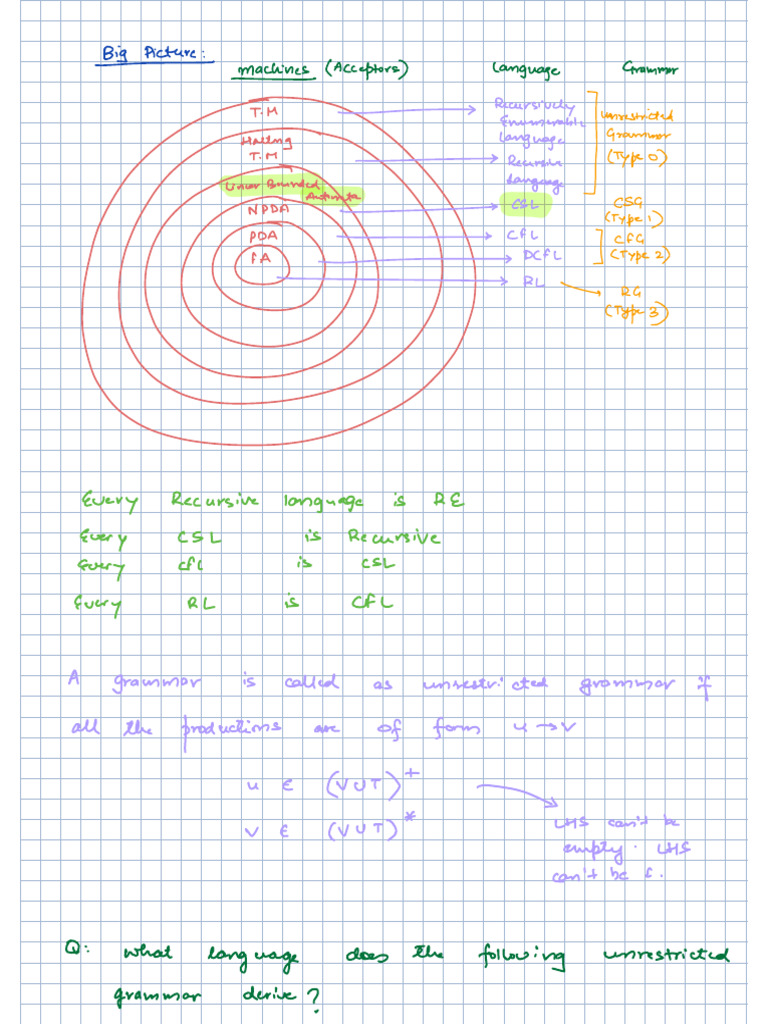 Big Picture:
Machines (Acceptors) Language Grammar
T.M
Recursively
Enumerable
Language
Unrestricted
Grammar
(Type 0)
Halting
T.M
Recursive
Language
Linear Bounded
Automata
CSL
CSG
(Type 1)
NPDA
CFL
CFG
(Type 2)
PDA
DCFL
FA
RL
RG
(Type 3)
Every Recursive language is RE
Every CSL is Recursive
Every CFL is CSL
Every RL is CFL
A grammar is called as unrestricted grammar if
all the productions are of form u → v
u ∈ (VUT)⁺
v ∈ (VUT)*
LHS can't be
empty. LHS
can't be ε.
Q: What language does the following unrestricted
grammar derive?